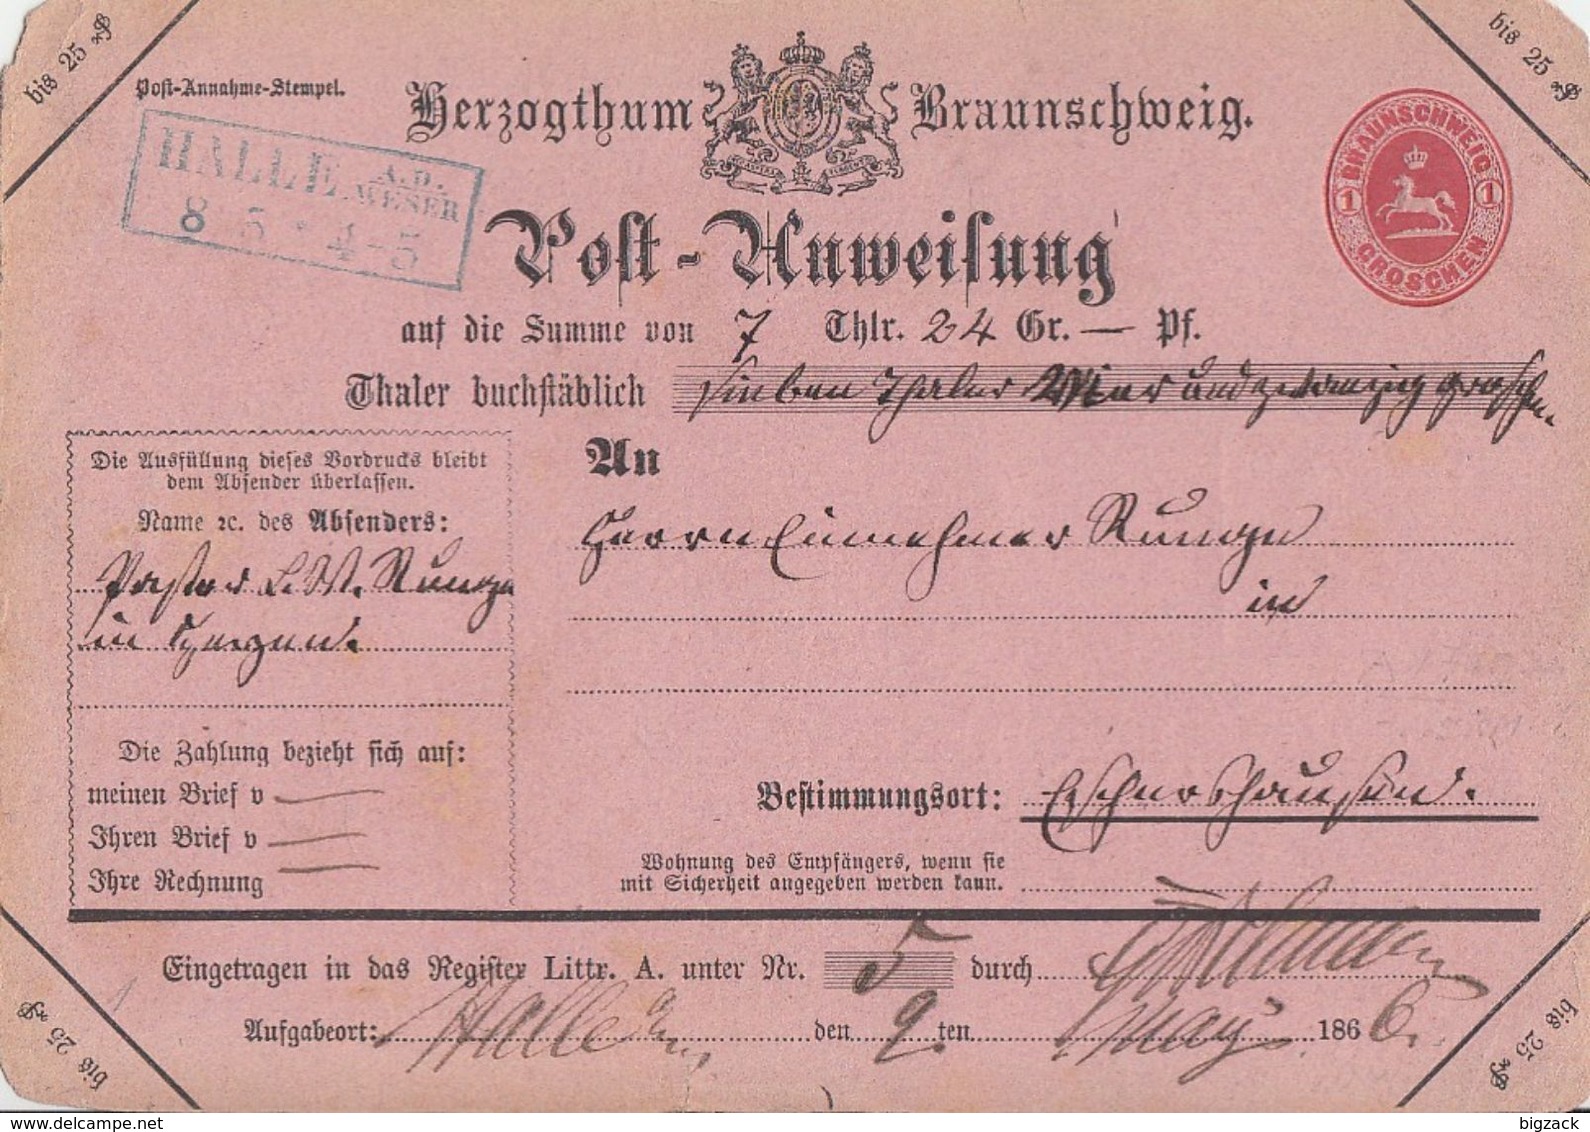 bis 25 ₰
bis 25 ₰
Post-Annahme-Stempel.
Herzogthum Braunschweig.
HALLE A.D. WESER
8 5 * 4-5
BRAUNSCHWEIG
1 1
GROSCHEN
Post-Anweisung
auf die Summe von 7 Thlr. 24 Gr. — Pf.
Thaler buchstäblich Sieben Thaler Vier und zwanzig Groschen.
Die Ausfüllung dieses Vordrucks bleibt
dem Absender überlassen.
Name ꝛc. des Absenders:
Pastor L. W. Runge
in
An
Herrn Einnehmer Runge
in
Die Zahlung bezieht sich auf:
meinen Brief v —
Ihren Brief v —
Ihre Rechnung —
Bestimmungsort: Eschershausen.
Wohnung des Empfängers, wenn sie
mit Sicherheit angegeben werden kann.
Eingetragen in das Register Littr. A. unter Nr. 5 durch
Aufgabeort: Halle den 9 ten May 1866.
bis 25 ₰
bis 25 ₰
www.delcampe.net
bigzack